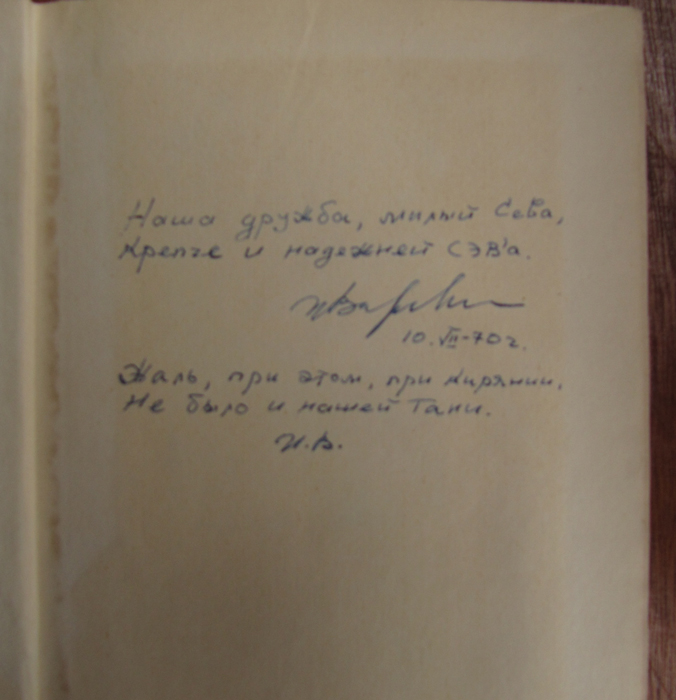 Наша дружба, милый Сева,
Крепче и надежней СЭВ'а.
10.VII-70г.
Жаль, при этом, при
Не было и нашей Тани.
И.В.